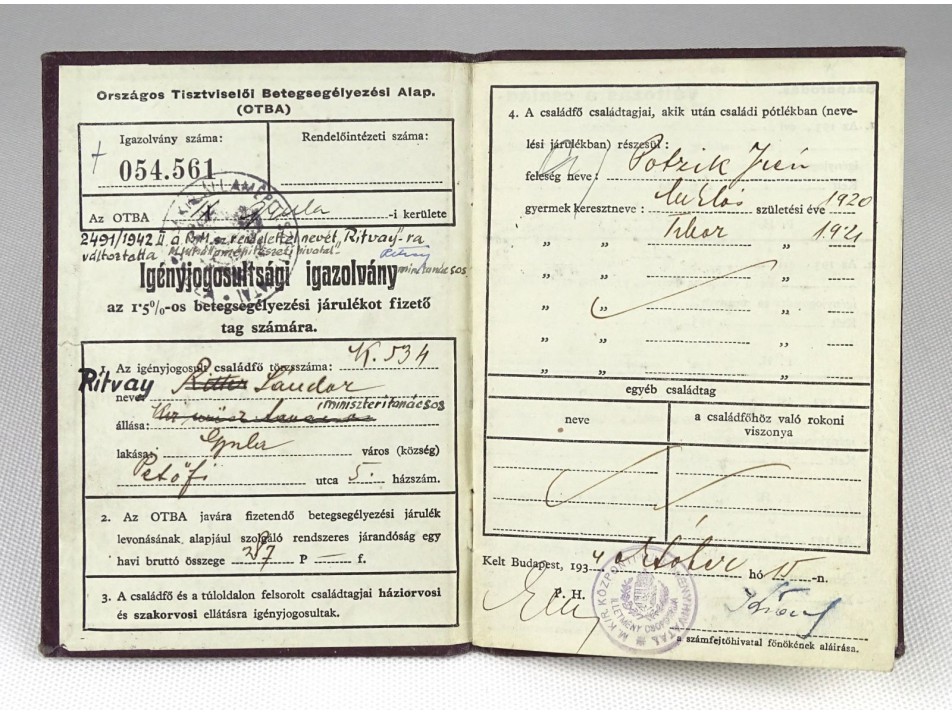 Országos Tisztviselői Betegsegélyezési Alap.
(OTBA)
Igazolvány száma:
Rendelőintézeti száma:
054.561
Az OTBA IX Gyula -i kerülete
2491/1942 II a B.M. sz. rendelettel nevét "Ritvay"-ra
változtatta
Ritvay
Igényjogosultsági igazolvány
minisztanácsos
az 1·5%-os betegsegélyezési járulékot fizető
tag számára.
1. Az igényjogosult családfő törzsszáma: K. 534
Ritvay
neve Ritter Sándor
miniszteri tanácsos
állása:
lakása: Gyula város (község)
Petőfi utca 5. házszám.
2. Az OTBA javára fizetendő betegsegélyezési járulék
levonásának alapjául szolgáló rendszeres járandóság egy
havi bruttó összege 287 P — f.
3. A családfő és a túloldalon felsorolt családtagjai háziorvosi
és szakorvosi ellátásra igényjogosultak.
4. A családfő családtagjai, akik után családi pótlékban (neve-
lési járulékban) részesül:
feleség neve: Potzik Irén
gyermek keresztneve: Miklós születési éve 1920
" " Tibor " 1921
" " "
" " "
" " "
" " "
egyéb családtag
neve
a családfőhöz való rokoni
viszonya
Kelt Budapest, 1934 október hó 15-n.
P. H.
M. KIR. KÖZPONTI
ILLETMÉNY CSOPORTJA
a számfejtőhivatal főnökének aláírása.